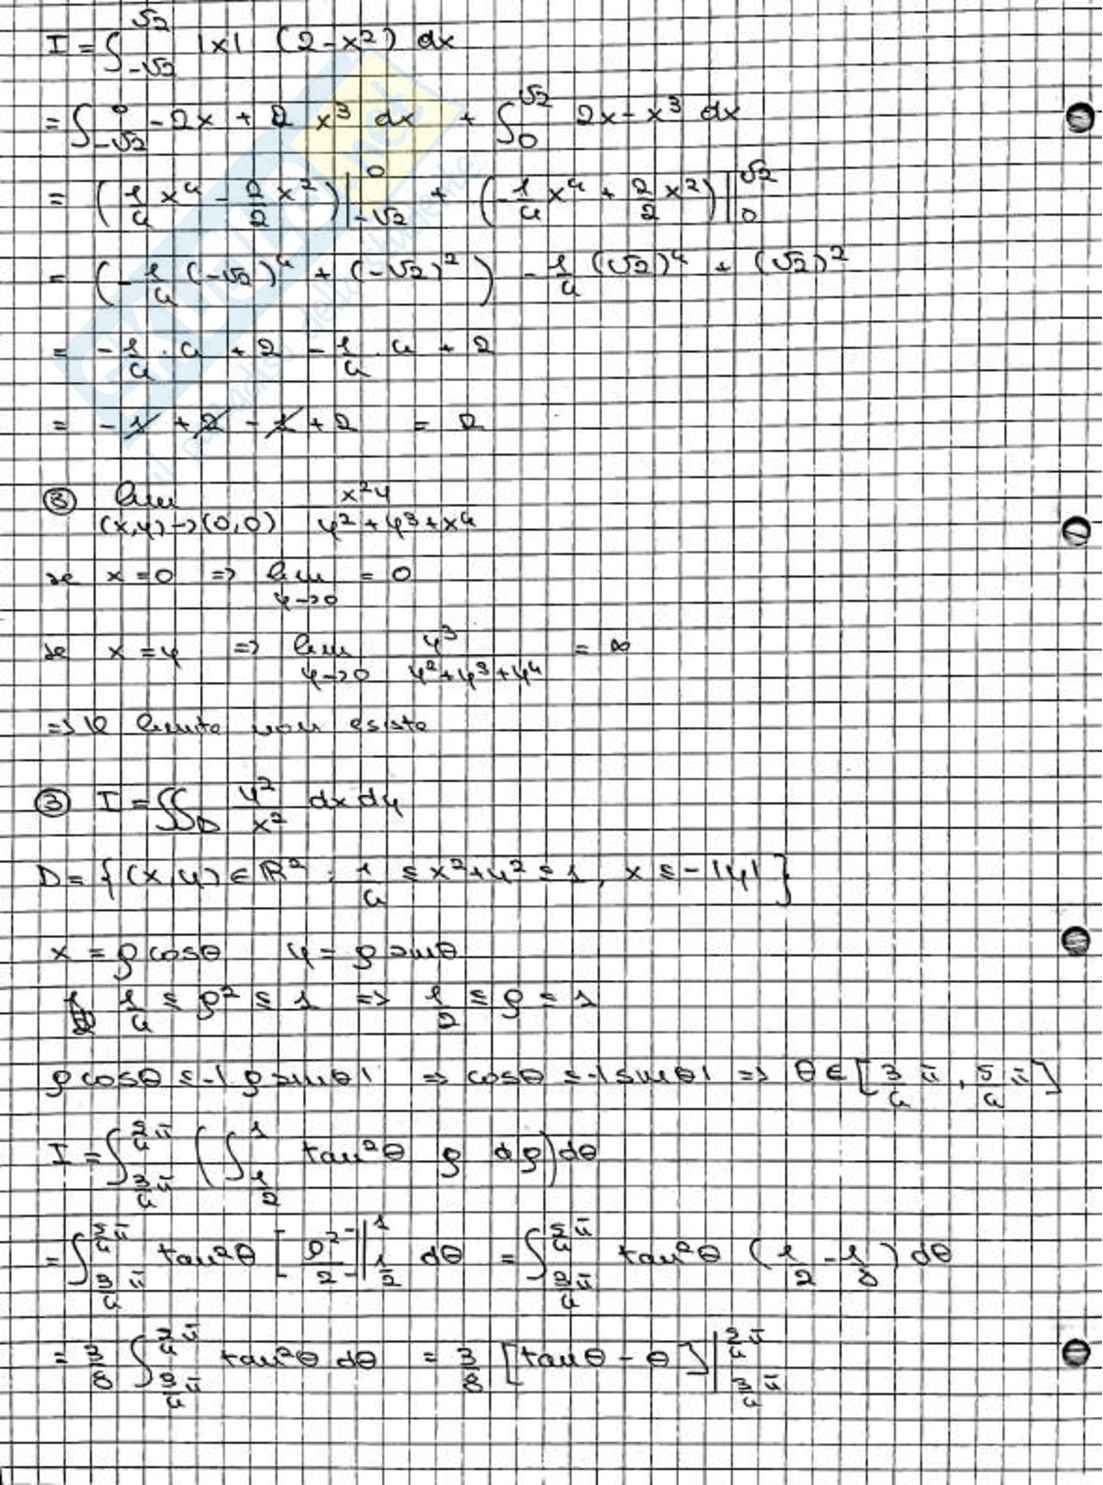 I = ∫_{-√2}^{√2} |x| (2-x²) dx
= ∫_{-√2}^{0} -2x + x³ dx + ∫_{0}^{√2} 2x - x³ dx
= (1/4 x⁴ - 2/2 x²)|_{-√2}^{0} + (-1/4 x⁴ + 2/2 x²)|_{0}^{√2}
= (-1/4 (-√2)⁴ + (-√2)²) - 1/4 (√2)⁴ + (√2)²
= -1/4 · 4 + 2 - 1/4 · 4 + 2
= -1 + 2 - 1 + 2 = 2
③ lim_{(x,y)→(0,0)} x²y / (y²+y³+x⁴)
se x=0 ⇒ lim_{y→0} = 0
se x=y ⇒ lim_{y→0} y³ / (y²+y³+y⁴) = ∞
⇒ il limite non esiste
③ I = ∬_D y²/x² dx dy
D = {(x,y) ∈ ℝ² : 1/4 ≤ x²+y² ≤ 1, x ≤ -|y|}
x = ρ cosθ y = ρ sinθ
1/4 ≤ ρ² ≤ 1 ⇒ 1/2 ≤ ρ ≤ 1
ρ cosθ ≤ -|ρ sinθ| ⇒ cosθ ≤ -|sinθ| ⇒ θ ∈ [3/4 π, 5/4 π]
I = ∫_{3/4 π}^{5/4 π} (∫_{1/2}^{1} tan²θ ρ dρ) dθ
= ∫_{3/4 π}^{5/4 π} tan²θ [ρ²/2]|_{1/2}^{1} dθ = ∫_{3/4 π}^{5/4 π} tan²θ (1/2 - 1/8) dθ
= 3/8 ∫_{3/4 π}^{5/4 π} tan²θ dθ = 3/8 [tanθ - θ]|_{3/4 π}^{5/4 π}